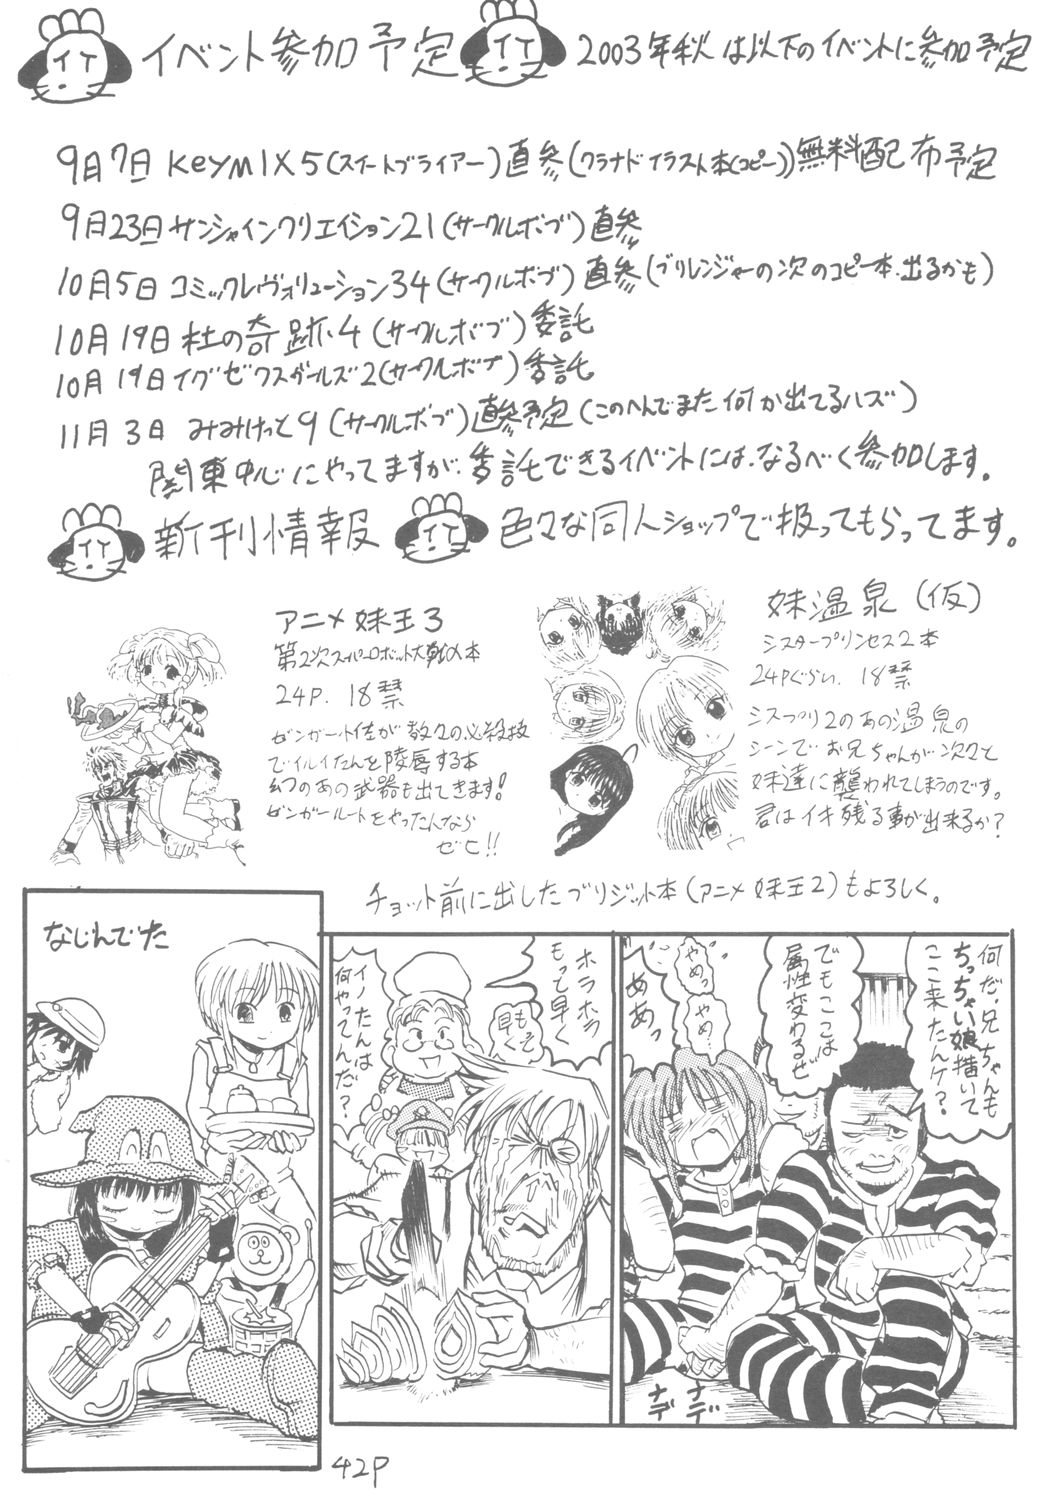 イベント参加予定
2003年秋は以下のイベントに参加予定
9月7日 keymix5(スイートブライアー)直参(クラナドイラスト本(コピー))無料配布予定
9月23日 サンシャインクリエイション21(サークルボブ)直参
10月5日 コミックレヴォリューション34(サークルボブ)直参(ブリレンジャーの次のコピー本、出るかも)
10月19日 杜の奇跡4(サークルボブ)委託
10月19日 イグゼクスガールズ2(サークルボブ)委託
11月3日 みみけっと9(サークルボブ)直参予定(このへんでまた何か出てるハズ)
関東中心にやってますが、委託できるイベントには、なるべく参加します。
新刊情報
色々な同人ショップで扱ってもらってます。
アニメ妹王3
第2次スーパーロボット大戦α本
24P. 18禁
ゼンガー少佐が数々の必殺技
でイルイたんを陵辱する本
幻のあの武器も出てきます!
ゼンガールートをやったんなら
ゼヒ!!
妹温泉(仮)
シスタープリンセス2本
24Pぐらい. 18禁
シスプリ2のあの温泉の
シーンでお兄ちゃんが次々と
妹達に襲われてしまうのです。
君はイキ残る事が出来るか?
チョット前に出したブリジット本(アニメ妹王2)もよろしく。
何だ、兄ちゃんも
ちっちゃい娘描いて
ここ来たんケ?
でもここは
属性変わるぜ
やめっ
やめ…
ああっ
ナデ
ナデ
ホラホラ
もって早く
もって
早く
イノたんは
何やってんだ?
なじんでた
42P